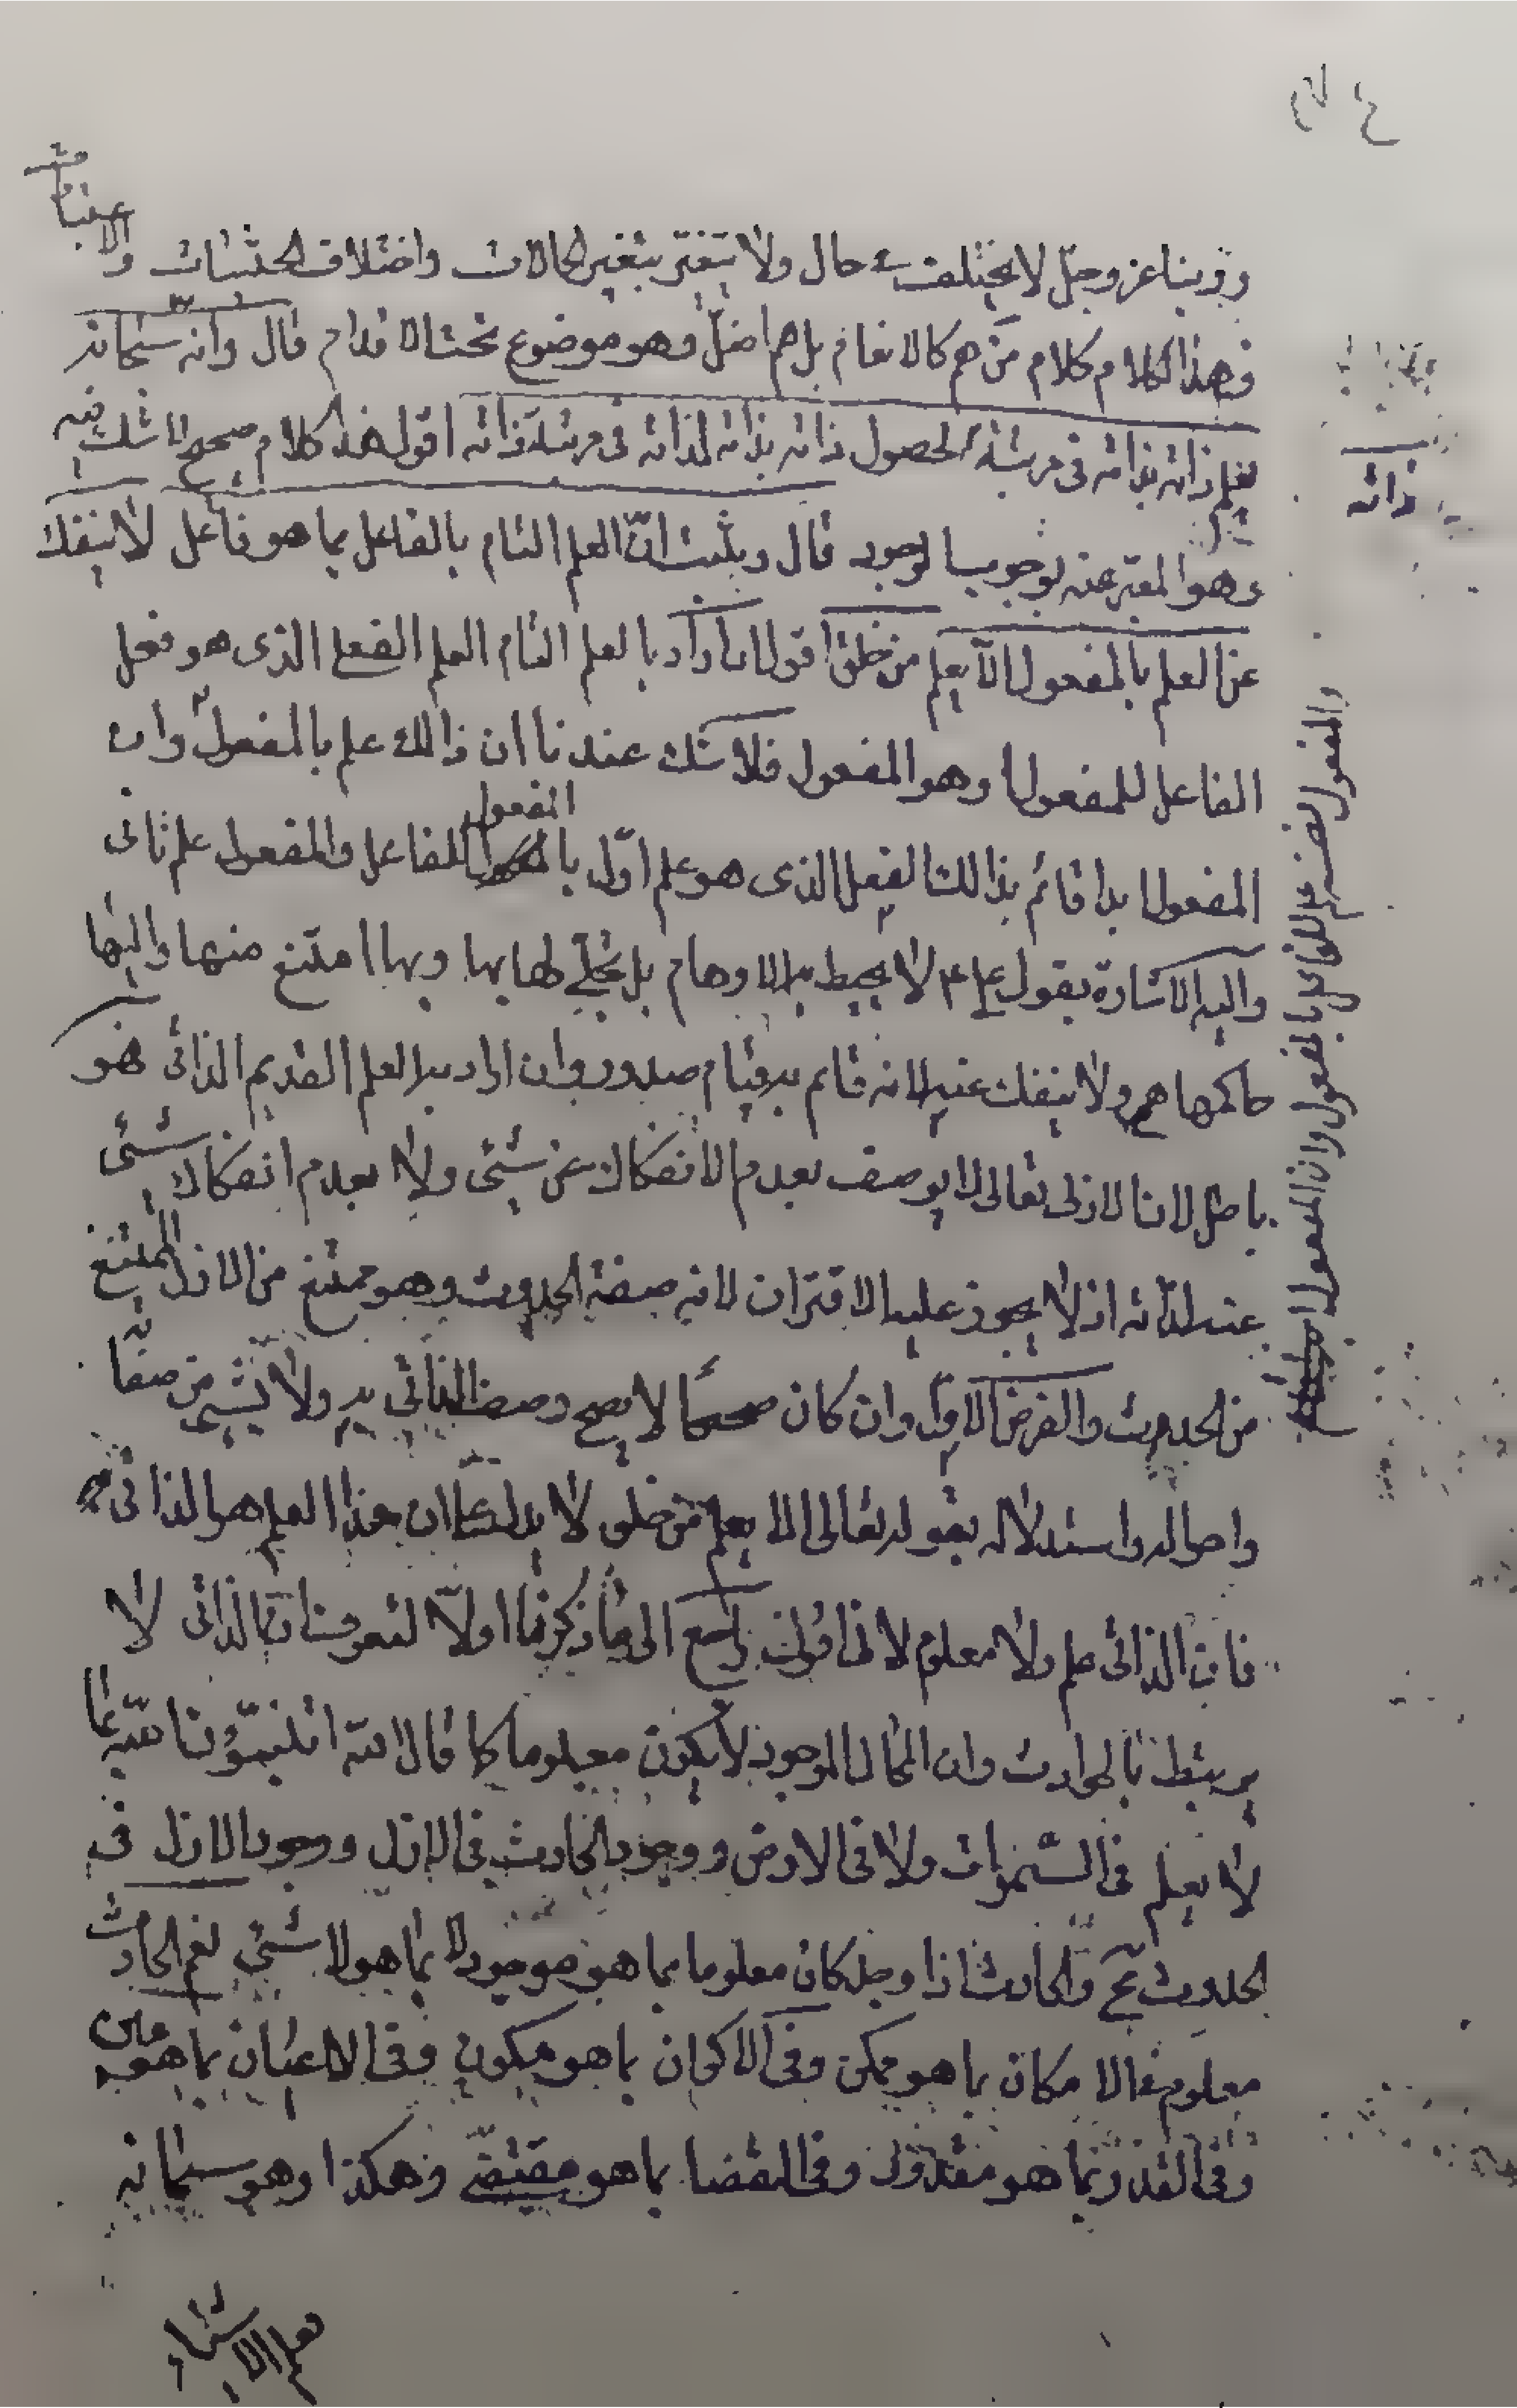 وربنا عز وجل لا يختلف في حال ولا يتغير بتغير الحالات واختلاف الحيثيات والاعتبارات
وهذا الكلام كلام من هم كالانعام بل هم اضل وهو موضوع تحت الاقدام قال وانه سبحانه
يعلم ذاته بذاته في مرتبة الحصول ذاته بذاته لذاته في مرتبة ذاته اقول هذا كلام صحيح لا شك فيه
ذاته
وهو المعبر عنه بوجوب الوجود قال ويثبت انّ العلم التام بالفاعل بما هو فاعل لا ينفك
عن العلم بالمفعول الا يعلم من خلق اقول ان اراد بالعلم التام العلم الفعلي الذي هو فعل
الفاعل للمفعول وهو المفعول فلا شك عندنا ان ذالك علم بالمفعول وان
المفعول به قائم بذالك الفعل الذي هو علم اوّل بالمفعول للفاعل والمفعول علم ثاني
والمفعول نفسه علم للفاعل بالمفعول وان المفعول
واليه الاشارة بقول علي ع لا يحيط به الاوهام بل تجلّى لها بها وبها امتنع منها واليها
حاكمها هم ولا ينفك عنه لانه قائم به قيام صدور وان اراد به العلم القديم الذاتي فهو
باطل لان الازل تعالى لا يوصف بعدم الانفكاك عن شئ ولا بعدم انفكاك شئ
عنه لذاته اذ لا يجوز عليه الاقتران لانه صفة الحدوث وهو ممتنع من الازل الممتنع
من الحدوث والفرض الاول وان كان صحيحا لا يصح وصف الذاتي به ولا بشئ من صفاته
واحواله واستدلاله بقوله تعالى الا يعلم من خلق لا يدل على ان هذا العلم هو الذاتي
فان الذاتي علم ولا معلوم لانا نقول راجع الى ما ذكرنا اولا لتعرف ان الذاتي لا
يرتبط بالحوادث وان المحال الوجود لا يكون معلوما كما قال الله اتنبؤن الله بما
لا يعلم في السموات ولا في الارض ووجود الحادث في الازل ووجود الازل في
الحدوث مح والحادث اذا وجد كان معلوما بما هو موجود لا بما هو لا شئ نعم الحادث
معلوم في الامكان بما هو ممكن وفي الاكوان بما هو مكون وفي الاعيان بما هو عين
وفي القدر بما هو مقدور وفي القضا بما هو مقتضى وهكذا وهو سبحانه
يعلم الاشياء